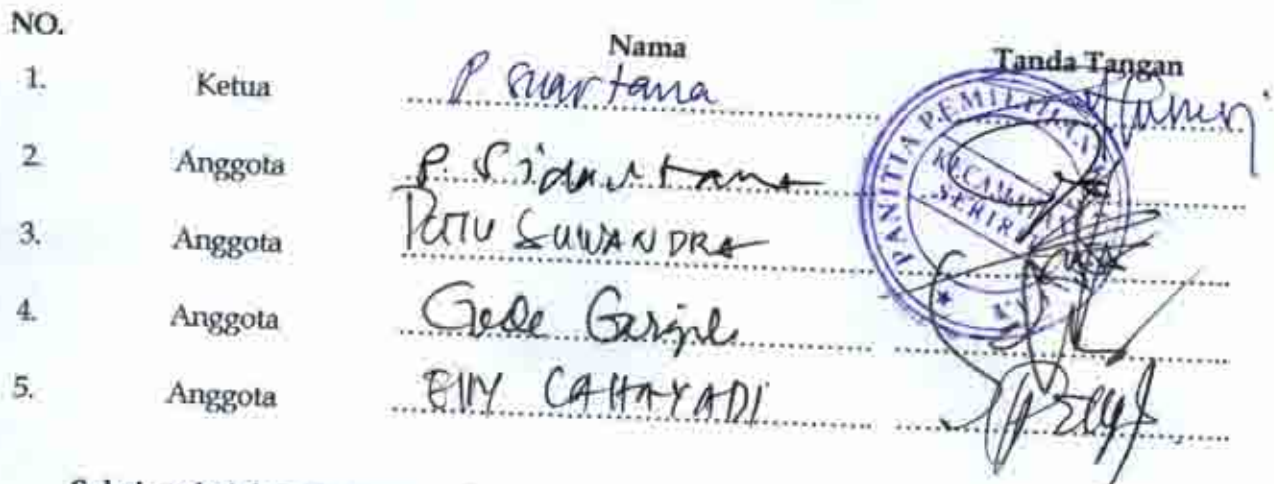 NO. Nama Tanda Tangan
1. Ketua P Suartana
2. Anggota P. Sidartana
3. Anggota PUTU SUWANDRA
4. Anggota Gede
5. Anggota ELLY CAHAYADI
PANITIA PEMILIHAN
KECAMATAN
SERIRIT